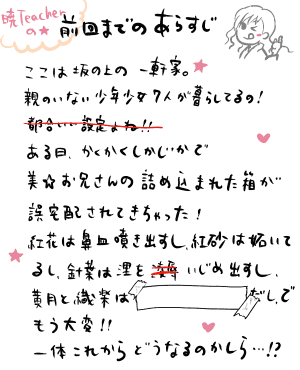 暁Teacherの☆
前回までのあらすじ
ここは坂の上の一軒家。
親のいない少年少女7人が暮らしてるの!
都合いい設定よね!!
ある日、かくかくしかじかで
美☆お兄さんの詰め込まれた箱が
誤宅配されてきちゃった!
紅花は鼻血噴き出すし、紅砂は妬いて
るし、針葉は浬を凌辱いじめ出すし、
黄月と織楽は だし、で
もう大変!!
一体これからどうなるのかしら…!?